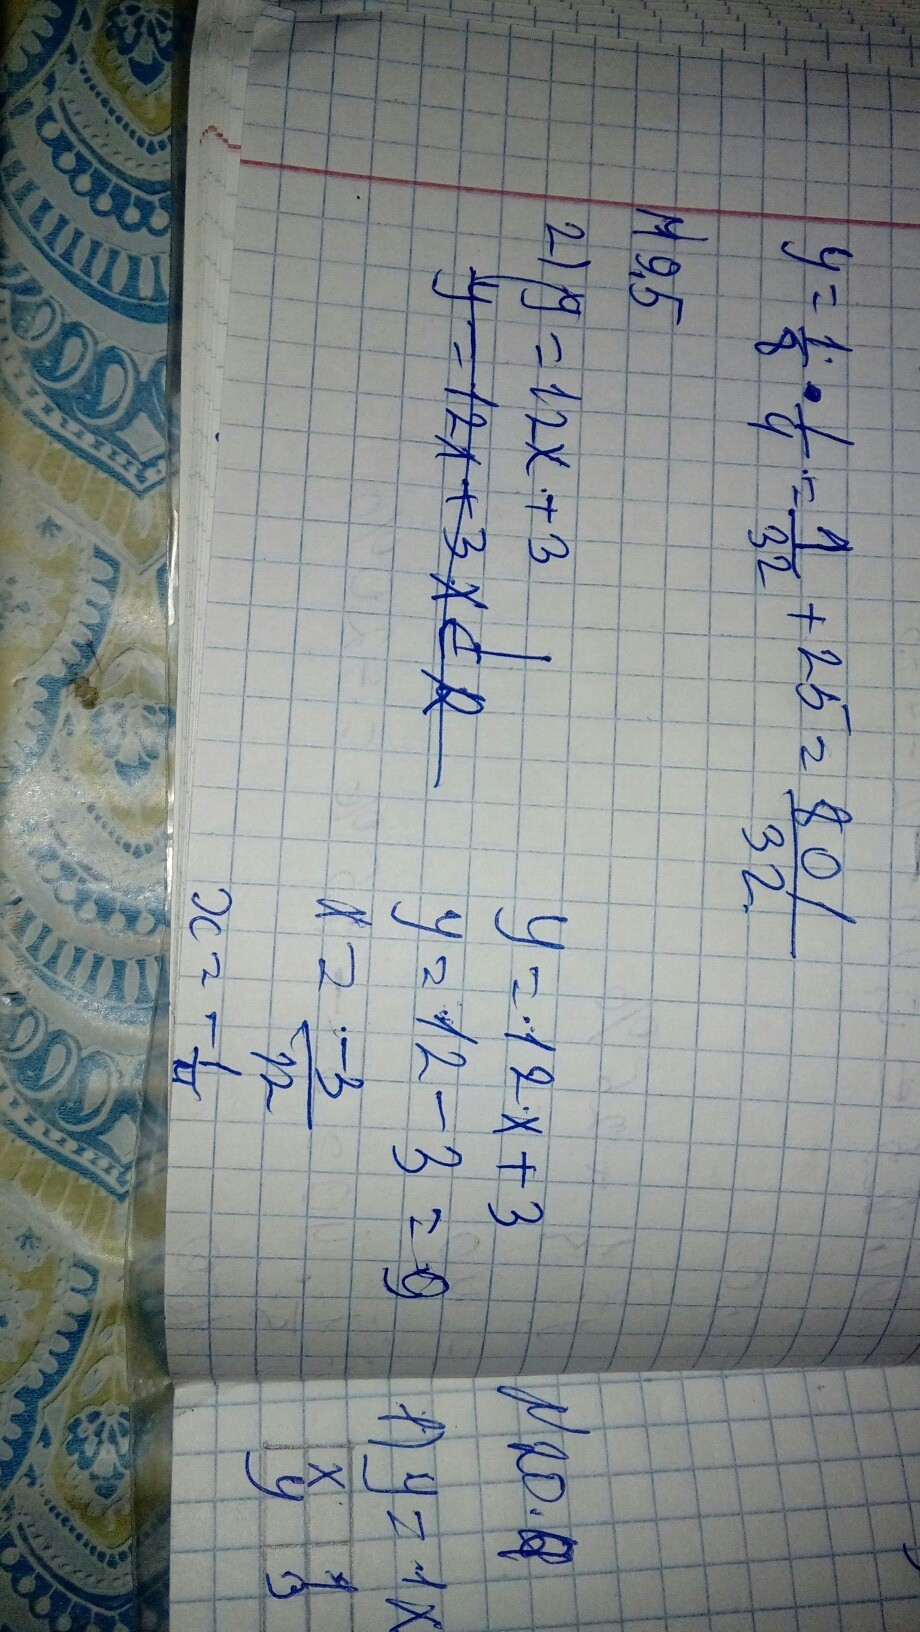 y = 1/8 · 1/4 = 1/32 + 25 = 801/32
№ 9.5
2) y = 12x + 3
y = 12x + 3 x ∈ R
y = 12x + 3
y = 12 - 3 = 9
x = -3/12
x = -1/4
№ 20.
1) y = 1x
x 1
y 3